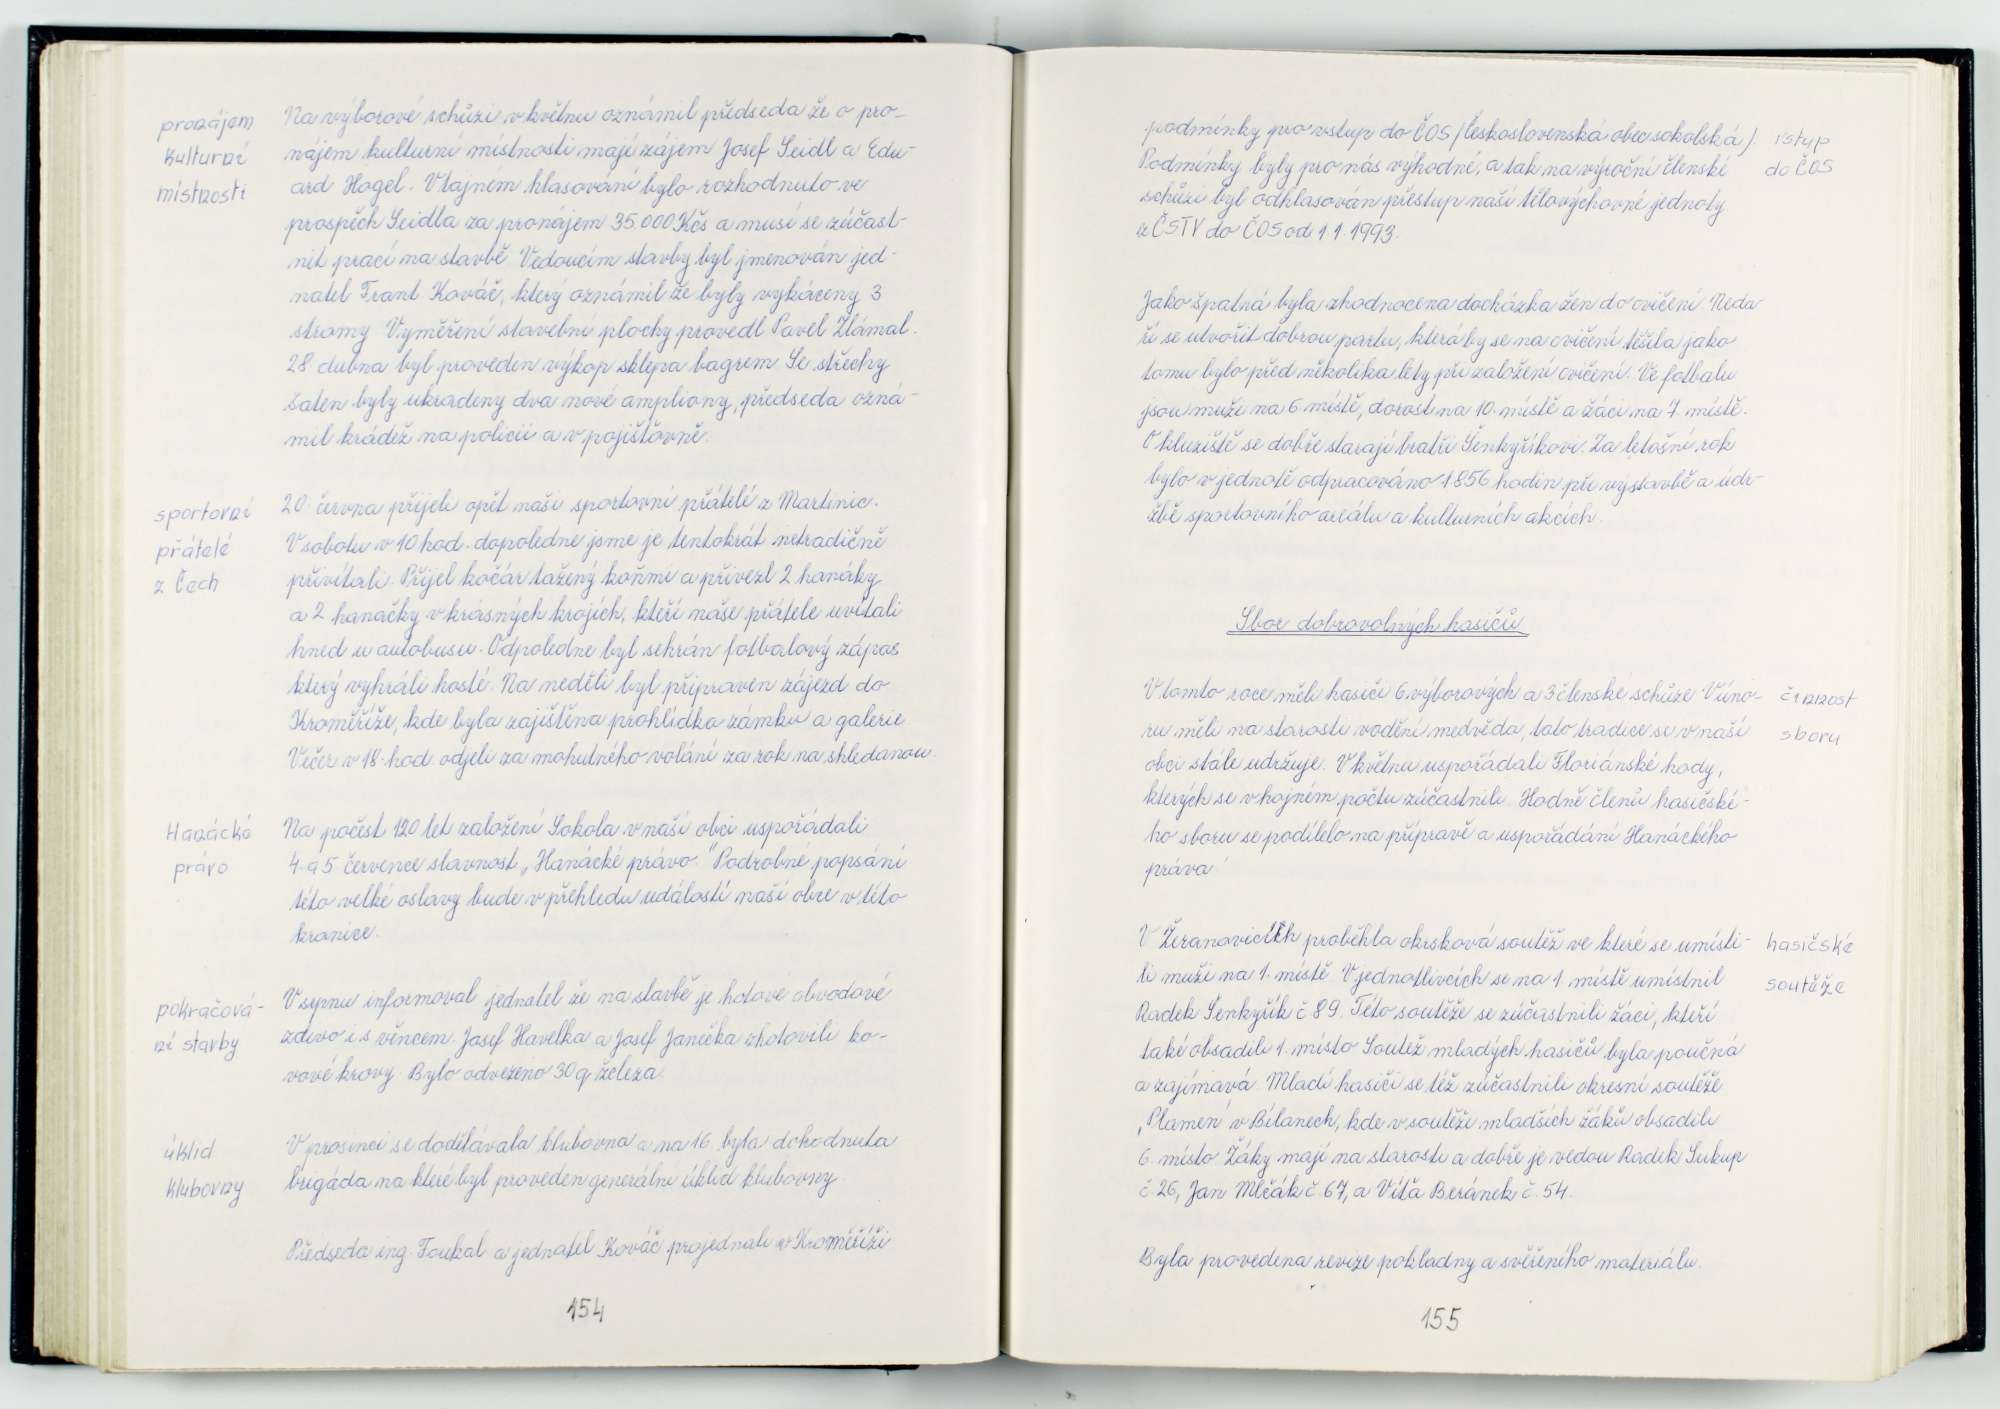 pronájem
kulturní
místnosti
Na výborové schůzi v květnu oznámil předseda že o pro-
nájem kulturní místnosti mají zájem Josef Seidl a Edu-
ard Hogel. V tajném hlasování bylo rozhodnuto ve
prospěch Seidla za pronájem 35.000 Kčs a musí se zúčast-
nit prací na stavbě Vedoucím stavby byl jmenován jed-
natel Frant. Kováč, který oznámil že byly vykáceny 3
stromy Vyměření stavební plochy provedl Pavel Zlámal.
28 dubna byl proveden výkop sklepa bagrem Se střechy
šaten byly ukradeny dva nové ampliony, předseda ozná-
mil krádež na policii a v pojišťovně.
sportovní
přátelé
z Čech
20. června přijeli opět naši sportovní přátelé z Martinic.
V sobotu v 10 hod. dopoledne jsme je tentokrát netradičně
přivítali. Přijel kočár tažený koňmi a přivezl 2 hanáky
a 2 hanačky v krásných krojích, kteří naše přátele uvítali
hned u autobusu. Odpoledne byl sehrán fotbalový zápas
který vyhráli hosté. Na neděli byl připraven zájezd do
Kroměříže, kde byla zajištěna prohlídka zámku a galerie
Večer v 18. hod. odjeli za mohutného volání za rok na shledanou.
Hanácké
právo
Na počest 120 let založení Sokola v naší obci uspořádali
4. a 5 července slavnost „Hanácké právo." Podrobné popsání
této velké oslavy bude v přehledu událostí naší obce v této
kronice.
pokračová-
ní stavby
V srpnu informoval jednatel že na stavbě je hotové obvodové
zdivo i s věncem. Josef Havelka a Josef Janečka zhotovili ko-
vové krovy. Bylo odvezeno 30 q železa.
úklid
klubovny
V prosinci se dodělávala klubovna a na 16. byla dohodnuta
brigáda na které byl proveden generální úklid klubovny.
Předseda ing. Foukal a jednatel Kováč projednali v Kroměříži
154
podmínky pro vstup do ČOS /Československá obec sokolská/.
Podmínky byly pro nás výhodné, a tak na výroční členské
schůzi byl odhlasován přestup naší tělovýchovné jednoty
z ČSTV do ČOS od 1.1.1993.
istup
do ČOS
Jako špatná byla zhodnocena docházka žen do cvičení. Neda-
ří se utvořit dobrou partu, která by se na cvičení těšila jako
tomu bylo před několika léty při založení cvičení. Ve fotbalu
jsou muži na 6. místě, dorost na 10. místě a žáci na 7. místě.
O kluziště se dobře starají bratři Šenkyříkovi. Za letošní rok
bylo v jednotě odpracováno 1856 hodin při výstavbě a údr-
žbě sportovního areálu a kulturních akcích.
Sbor dobrovolných hasičů
V tomto roce měli hasiči 6 výborových a 3 členské schůze V úno-
ru měli na starosti vodění medvěda, tato tradice se v naší
obci stále udržuje. V květnu uspořádali Floriánské hody,
kterých se v hojném počtu zúčastnili. Hodně členů hasičské-
ho sboru se podílelo na přípravě a uspořádání Hanáckého
práva.
činnost
sboru
V Žeranovicích proběhla okrsková soutěž ve které se umísti-
li muži na 1. místě. V jednotlivcích se na 1 místě umístnil
Radek Šenkyřík č 89. Této soutěže se zúčastnili žáci, kteří
také obsadili 1. místo Soutěž mladých hasičů byla poučná
a zajímavá. Mladí hasiči se též zúčastnili okresní soutěže
„Plamen" v Bílanech, kde v soutěži mladších žáků obsadili
6. místo. Žáky mají na starosti a dobře je vedou Radek Sukup
č 26, Jan Mlčák č. 67, a Víťa Beránek č. 54.
hasičské
soutěže
Byla provedena revize pokladny a svěřeného materiálu.
155